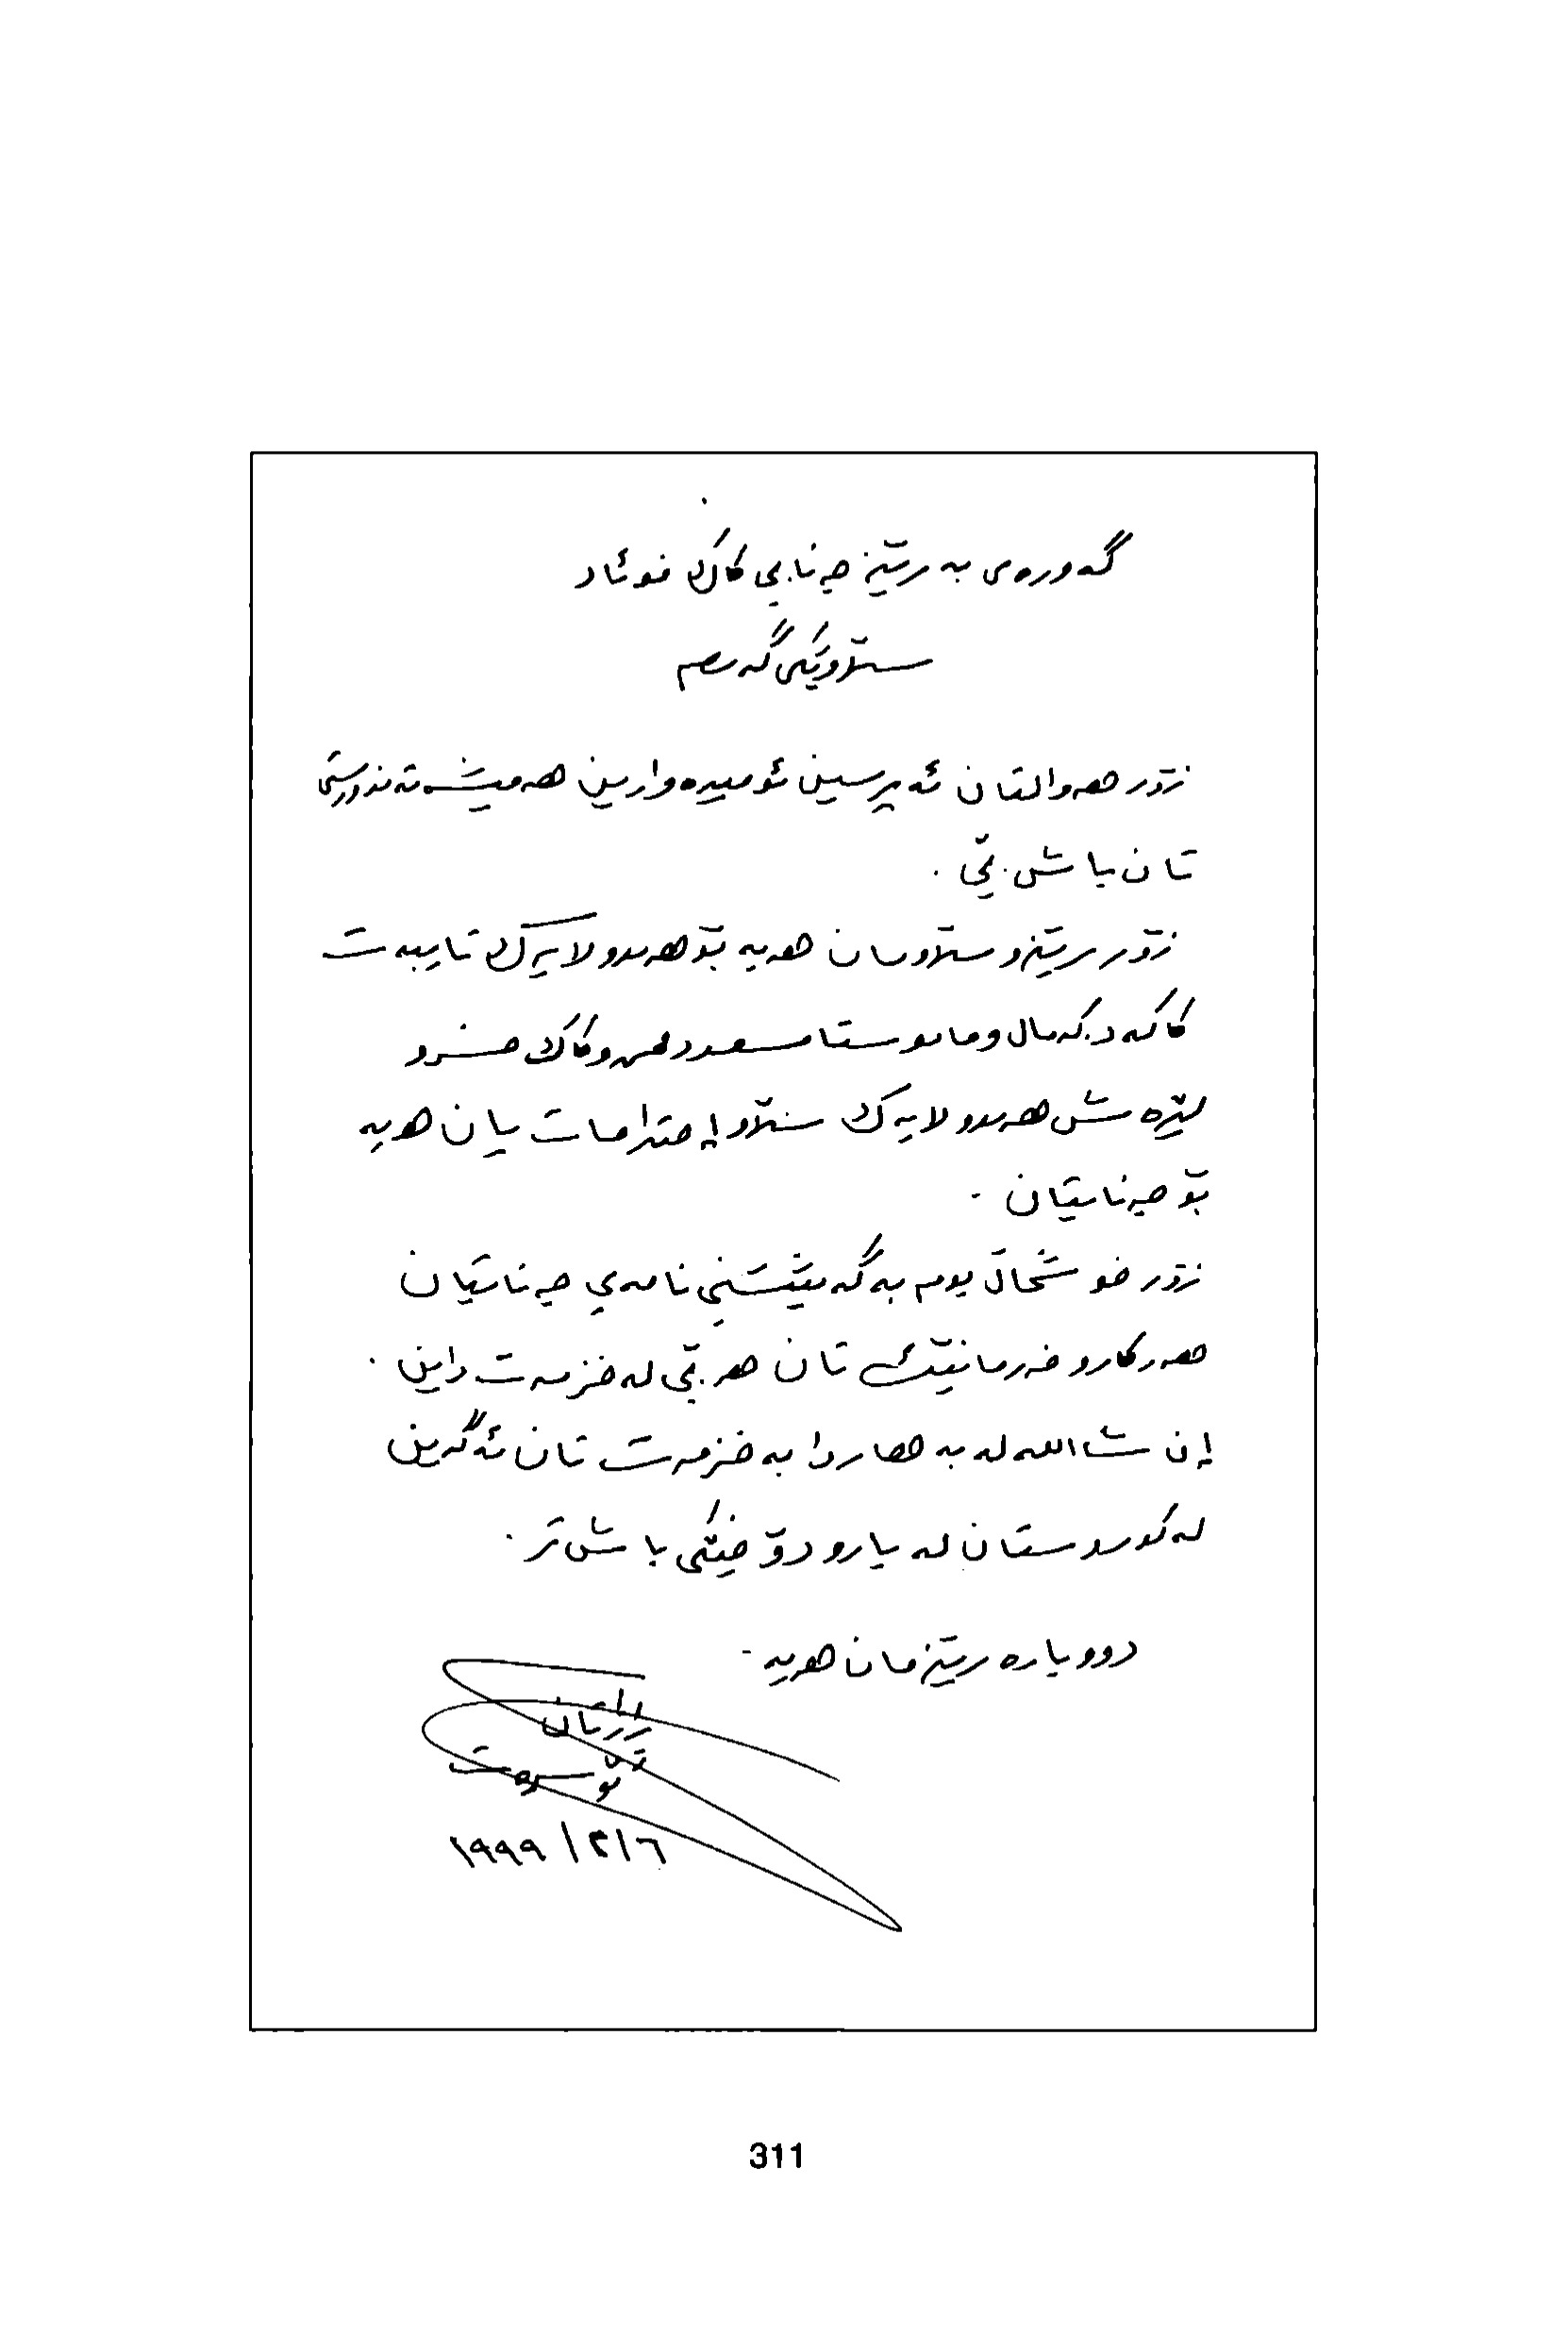 گەورەی بەرێز جەنابی کاک فوئاد
سڵاوێکی گەرم
زۆر هەوالتان ئەپرسین ئومیدەوارین هەمیشە تەندورستی
تان باش بێ .
زۆر رێزو سڵاومان هەیە بۆ هەردولایەک تایبەت
کاکە د.کەمال و ماموستا مسعود و کاک
لێرەش هەردولایەک سڵاو إحترامات یان هەیە
بۆ جەنابتان .
زۆر خوشحاڵ بوم بەگەیشتنی نامەی جەنابتان
هەرکارو فەرمانێک تان هەبێ لە خزمەت داین .
إن شاالله لە بەهاردا بەخزمەت تان ئەگەین
لە کوردستان لە بارودۆخێکی باش تر .
دووبارە رێزمان هەیە .
٦/٢/١٩٩٩
311